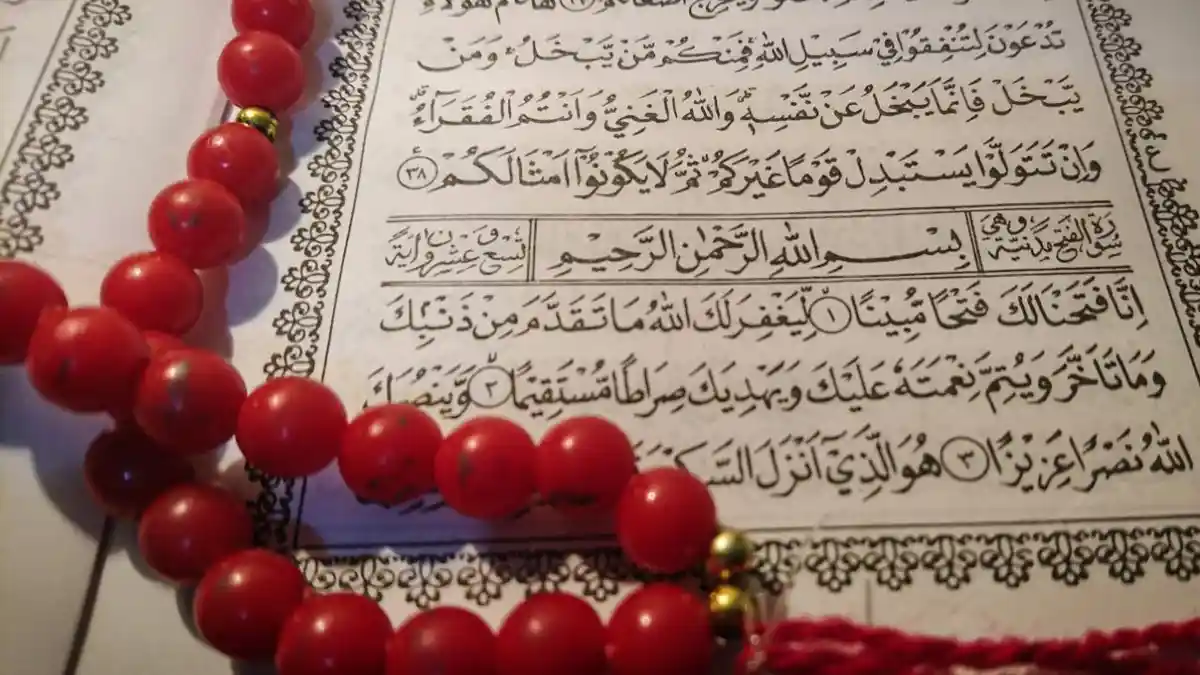 تُدْعَوْنَ لِتُنْفِقُوْا فِيْ سَبِيْلِ اللّٰهِ ۚ فَمِنْكُمْ مَّنْ يَّبْخَلُ ۚ وَمَنْ
يَّبْخَلْ فَاِنَّمَا يَبْخَلُ عَنْ نَّفْسِهٖ ؕ وَاللّٰهُ الْغَنِيُّ وَاَنْتُمُ الْفُقَرَآءُ ۚ
وَاِنْ تَتَوَلَّوْا يَسْتَبْدِلْ قَوْمًا غَيْرَكُمْ ۙ ثُمَّ لَا يَكُوْنُوْٓا اَمْثَالَكُمْ ۟ ٣٨
سُوْرَةُ الْفَتْحِ مَدَنِيَّةٌ وَّهِيَ بِسْمِ اللّٰهِ الرَّحْمٰنِ الرَّحِيْمِ تِسْعٌ وَّعِشْرُوْنَ اٰيَةً
اِنَّا فَتَحْنَا لَكَ فَتْحًا مُّبِيْنًا ١ لِّيَغْفِرَ لَكَ اللّٰهُ مَا تَقَدَّمَ مِنْ ذَنْۢبِكَ
وَمَا تَاَخَّرَ وَيُتِمَّ نِعْمَتَهٗ عَلَيْكَ وَيَهْدِيَكَ صِرَاطًا مُّسْتَقِيْمًا ٢ وَّيَنْصُرَكَ
اللّٰهُ نَصْرًا عَزِيْزًا ٣ هُوَ الَّذِيْٓ اَنْزَلَ